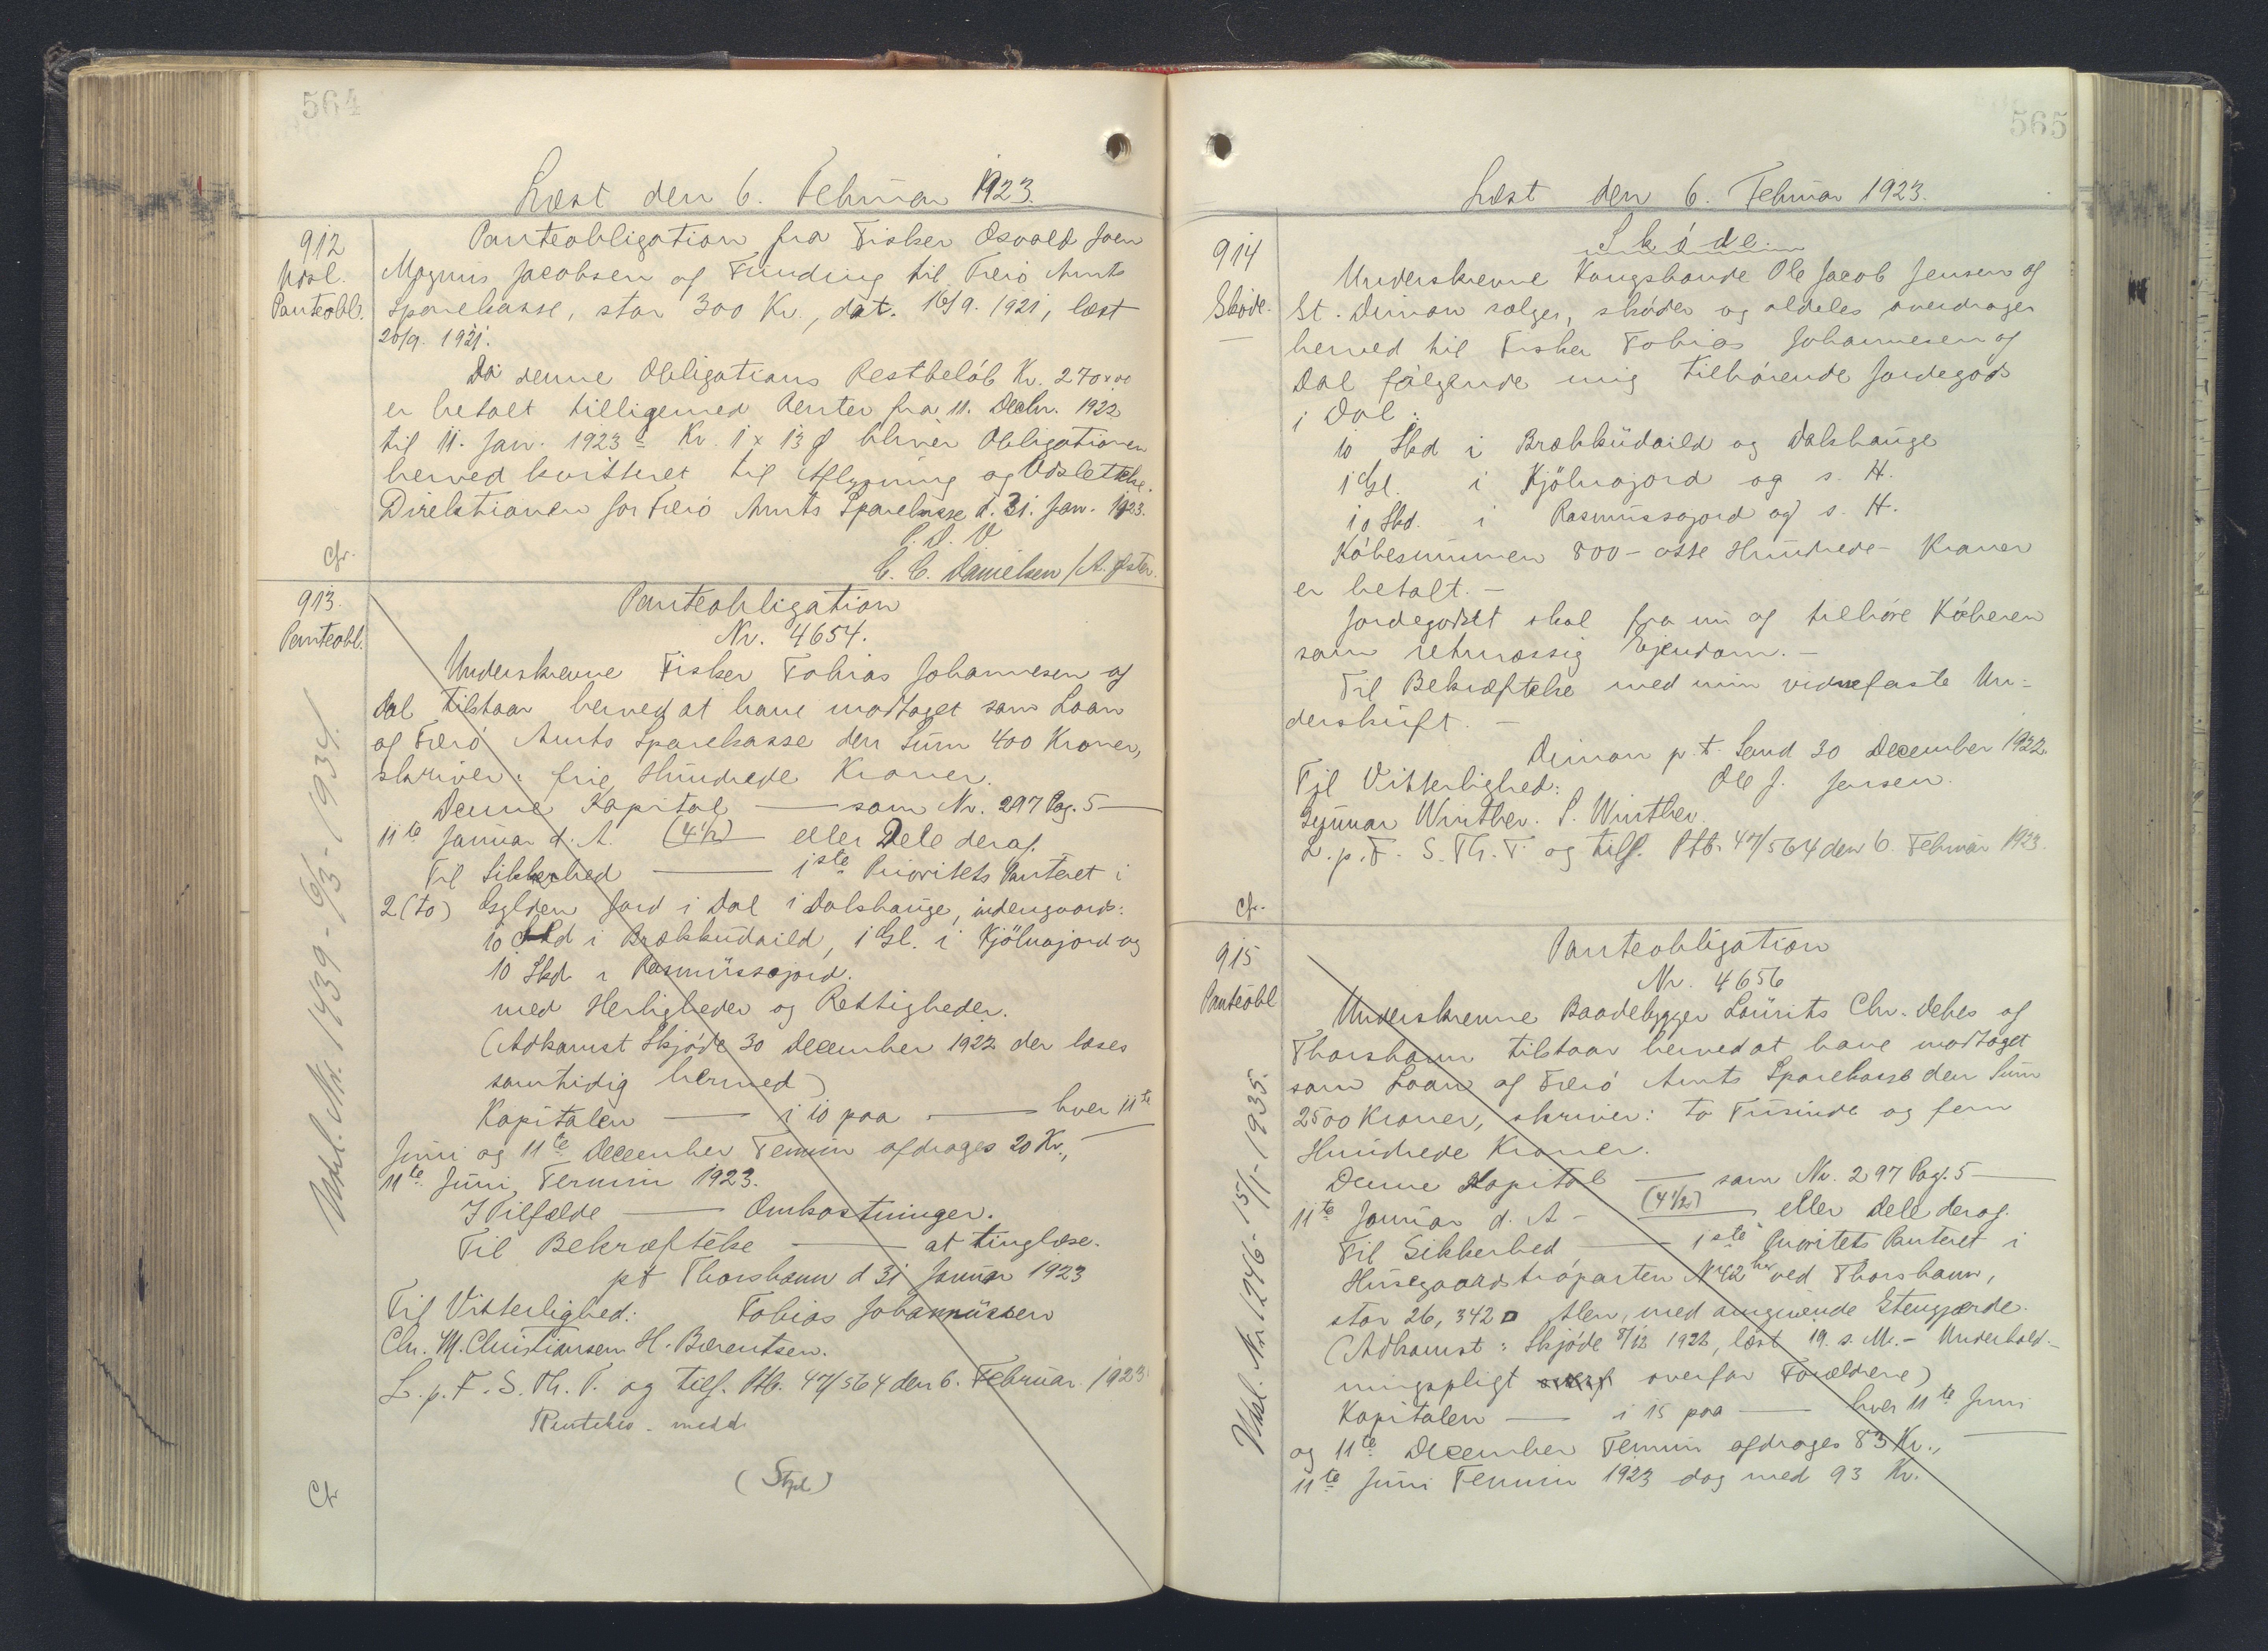 564
Læst den 6. Februar 1923.
912
Udsl.
Panteobl.
Panteobligation fra Fisker Osvald Joen
Magnus Jacobsen af Funding til Færø Amts
Sparekasse, stor 300 Kr., dat. 16/9. 1921, læst
20/9. 1921.
Da denne Obligations Restbeløb Kr. 270x00
er betalt tilligemed Renter fra 11. Decbr. 1922
til 11. Jan. 1923 = Kr. 1 x 13 Ø bliver Obligationen
herved kvitteret til Aflysning og Udslettelse.
Direktionen for Færø Amts Sparekasse d. 31. Jan. 1923.
P. D. V
C. C. Danielsen / A.
Cfr.
913.
Panteobl.
Panteobligation
Nr. 4654.
Underskrevne Fisker Tobias Johannesen af
Dal tilstaar herved at have modtaget som Laan
af Færø Amts Sparekasse den Sum 400 Kroner,
skriver: fire Hundrede Kroner.
Denne Kapital — som Nr. 297 Pag. 5 —
11te Januar d. A. (4½) — eller Dele deraf.
Til Sikkerhed — 1ste Prioritets Panteret i
2 (to) Gylden Jord i Dal i Dalshauge, indengaards:
10 Skd i Brækkudaild, 1 Gl. i Kjölnajord og
10 Skd. i Rasmussajord.
med Herligheder og Rettigheder.
(Adkomst Skjøde 30 December 1922 der læses
samtidig hermed)
Kapitalen — i 10 paa — hver 11te
Juni og 11te December Termin afdrages 20 Kr., —
11te Juni Termin 1923.
I Tilfælde — Omkostninger.
Til Bekræftelse — at tinglæse.
pt Thorshavn d 31 Januar 1923
Til Vitterlighed: Tobias Johannüssen
Chr. M. Christiansen H. Bærentsen.
L. p. F. S. Th. T. og tilf. Ptb. 47/564 den 6. Februar 1923
medd.
(Stpl)
Cfr
Udsl. Nr. 1439 - 6/3 - 1934.
565
Læst den 6. Februar 1923.
914
Skøde.
Skøde.
Underskrevne Kongsbonde Ole Jacob Jensen af
St. Dimon sælger, skøder og aldeles overdrager
herved til Fisker Tobias Johannesen af
Dal følgende mig tilhørende Jordegods
i Dal:
10 Skd i Brækkudaild og Dalshauge
1 Gl. i Kjölnajord og s. H.
10 Skd. i Rasmussajord og s. H.
Købesummen 800 - otte Hundrede - Kroner
er betalt. -
Jordegodset skal fra nu af tilhøre Køberen
som retmæssig Ejendom. -
Til Bekræftelse med min vidnefaste Un-
derskrift. -
Dimon p. t. Sand 30 December 1922.
Til Vitterlighed: Ole J. Jensen.
Gunnar Winther. S. Winther.
L. p. F. S. Th. T. og tilf. Ptb. 47/564 den 6. Februar 1923.
Cfr.
915
Panteobl
Panteobligation
Nr. 4656
Underskrevne Baadebygger Laurits Chr. Debes af
Thorshavn tilstaar herved at have modtaget
som Laan af Færø Amts Sparekasse den Sum
2500 Kroner, skriver: to Tusinde og fem
Hundrede Kroner.
Denne Kapital — som Nr. 297 Pag. 5 —
11te Januar d. A - (4½) — eller Dele deraf.
Til Sikkerhed — 1ste Prioritets Panteret i
Husegaardstróparten Nr 42 ved Thorshavn,
stor 26,342 □ Alen, med omgivende Stengærde.
(Adkomst: Skjøde 8/12 1922, læst 19. s. M. - Underhold-
ningspligt overfor Forældrene)
Kapitalen — i 15 paa — hver 11te Juni
og 11te December Termin afdrages 83 Kr., —
11te Juni Termin 1923 dog med 93 Kr.
Udsl. Nr 1246 - 15/1 - 1935.